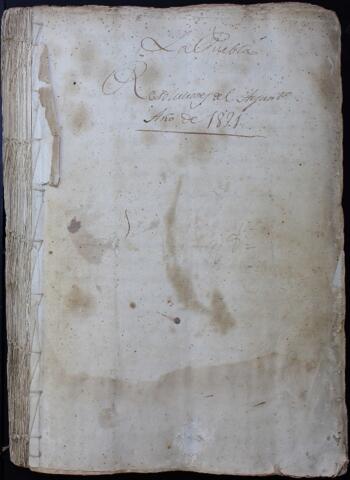 La Puebla
Resoluciones del Ayunto
Año de 1821.